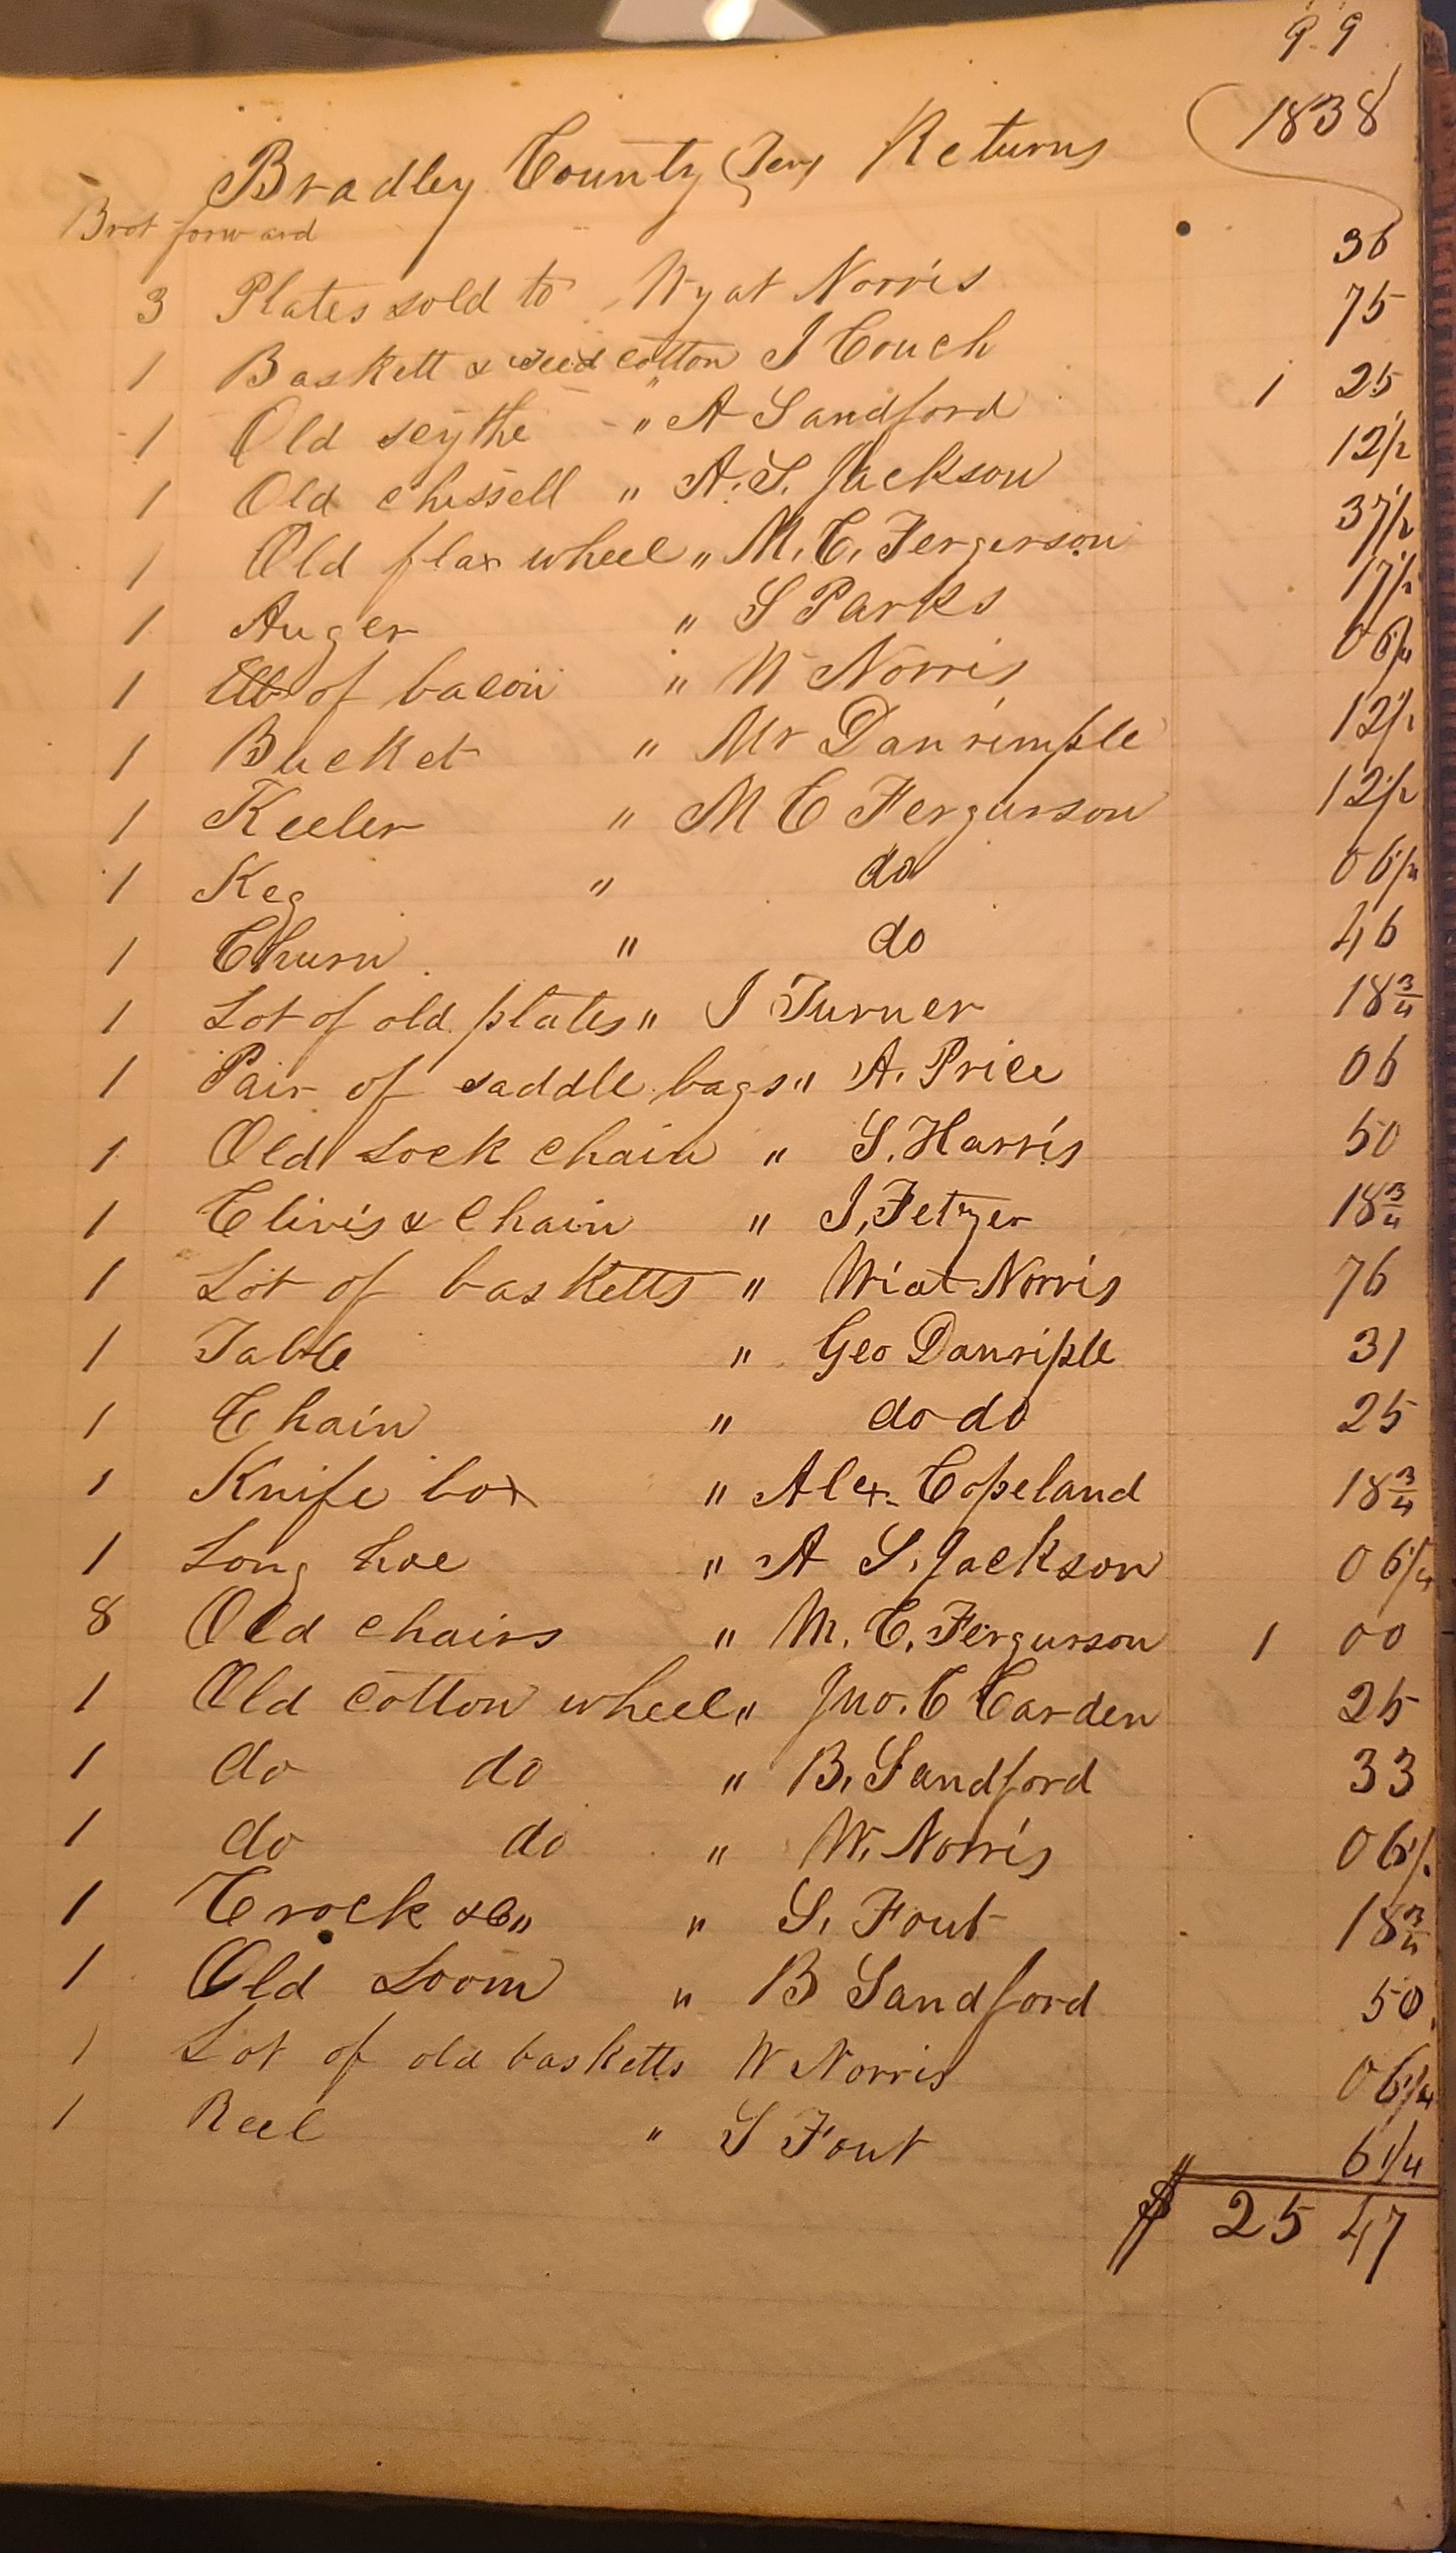 99
1838
Bradley County Ten Returns
Brot forward
3 Plates sold to Wyat Norris 36
1 Baskett & seed cotton J Couch 75
1 Old scythe " A Sandford 1 25
1 Old chissell " A. S. Jackson 12 1/2
1 Old flax wheel " M. C. Fergerson 37 1/2
1 Auger " S Parks 17 1/2
1 of bacon " W Norris 06 1/4
1 Bucket " Mr Danrimple 12 1/2
1 Keeler " M C Fergurson 12 1/2
1 Keg " do 06 1/4
1 Churn " do 46
1 Lot of old plates " J Turner 18 3/4
1 Pair of saddle bags " A. Price 06
1 Old Lock chain " S. Harris 50
1 Clivis & Chain " J, Fetzer 18 3/4
1 Lot of basketts " Wiat Norris 76
1 Table " Geo Danriple 31
1 Chain " do do 25
1 Knife box " Alex. Copeland 18 3/4
1 Long hoe " A S. Jackson 06 1/4
8 Old chairs " M. C. Fergurson 1 00
1 Old cotton wheel " Jno. C Carden 25
1 do do " B. Sandford 33
1 do do " W. Norris 06 1/4
1 Crock &c " " S. Fout 18 3/4
1 Old Loom " B Sandford 50
1 Lot of old basketts W Norris 06 1/4
1 Reel " S Fout 6 1/4
$ 25 47